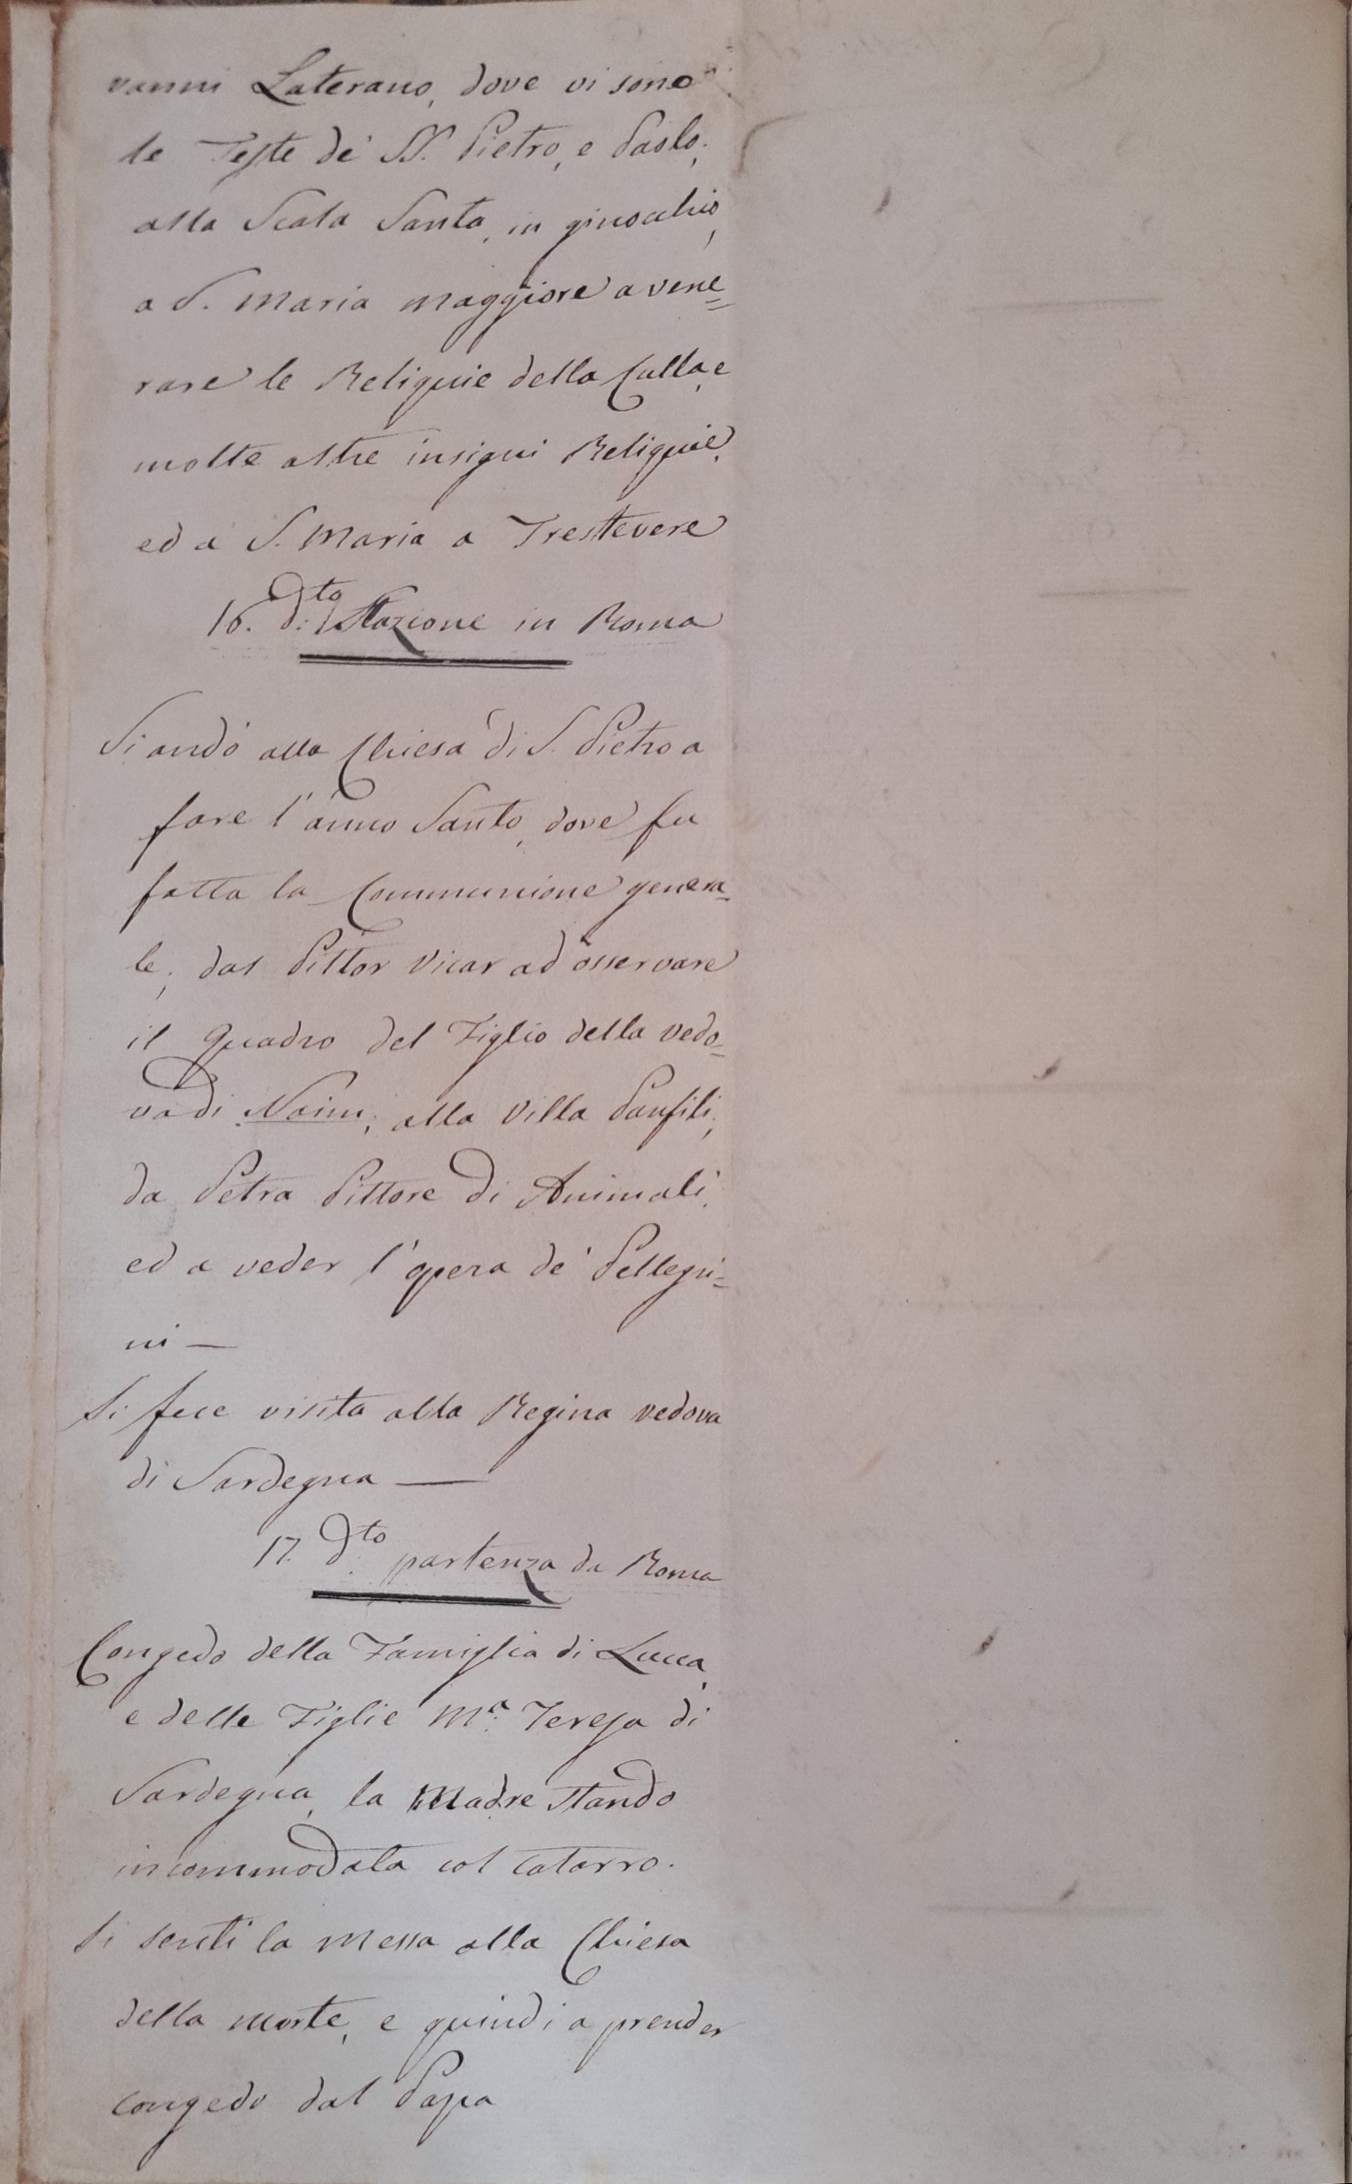 vanni Laterano, dove vi sono
le Teste de' SS. Pietro, e Paolo;
alla Scala Santa, in ginocchio,
a S. Maria Maggiore a vene=
rare le Reliquie della Culla, e
molte altre insigni Reliquie,
ed a S. Maria a Trestevere
16. d:to Stazione in Roma
Si andò alla Chiesa di S. Pietro a
fare l'anno Santo, dove fu
fatta la Communione genera=
le; dal Pittor Vicar ad osservare
il Quadro del Figlio della vedo=
va di Naim; alla Villa Panfili;
da Petra Pittore di Animali;
ed a veder l'opera de' Pellegri=
ni —
Si fece visita alla Regina vedova
di Sardegna —
17. d:to partenza da Roma
Congedo della Famiglia di Lucca,
e delle Figlie M.a Teresa di
Sardegna, la Madre stando
incommodata col catarro.
Si sentì la Messa alla Chiesa
della Morte, e quindi a prender
congedo dal Papa